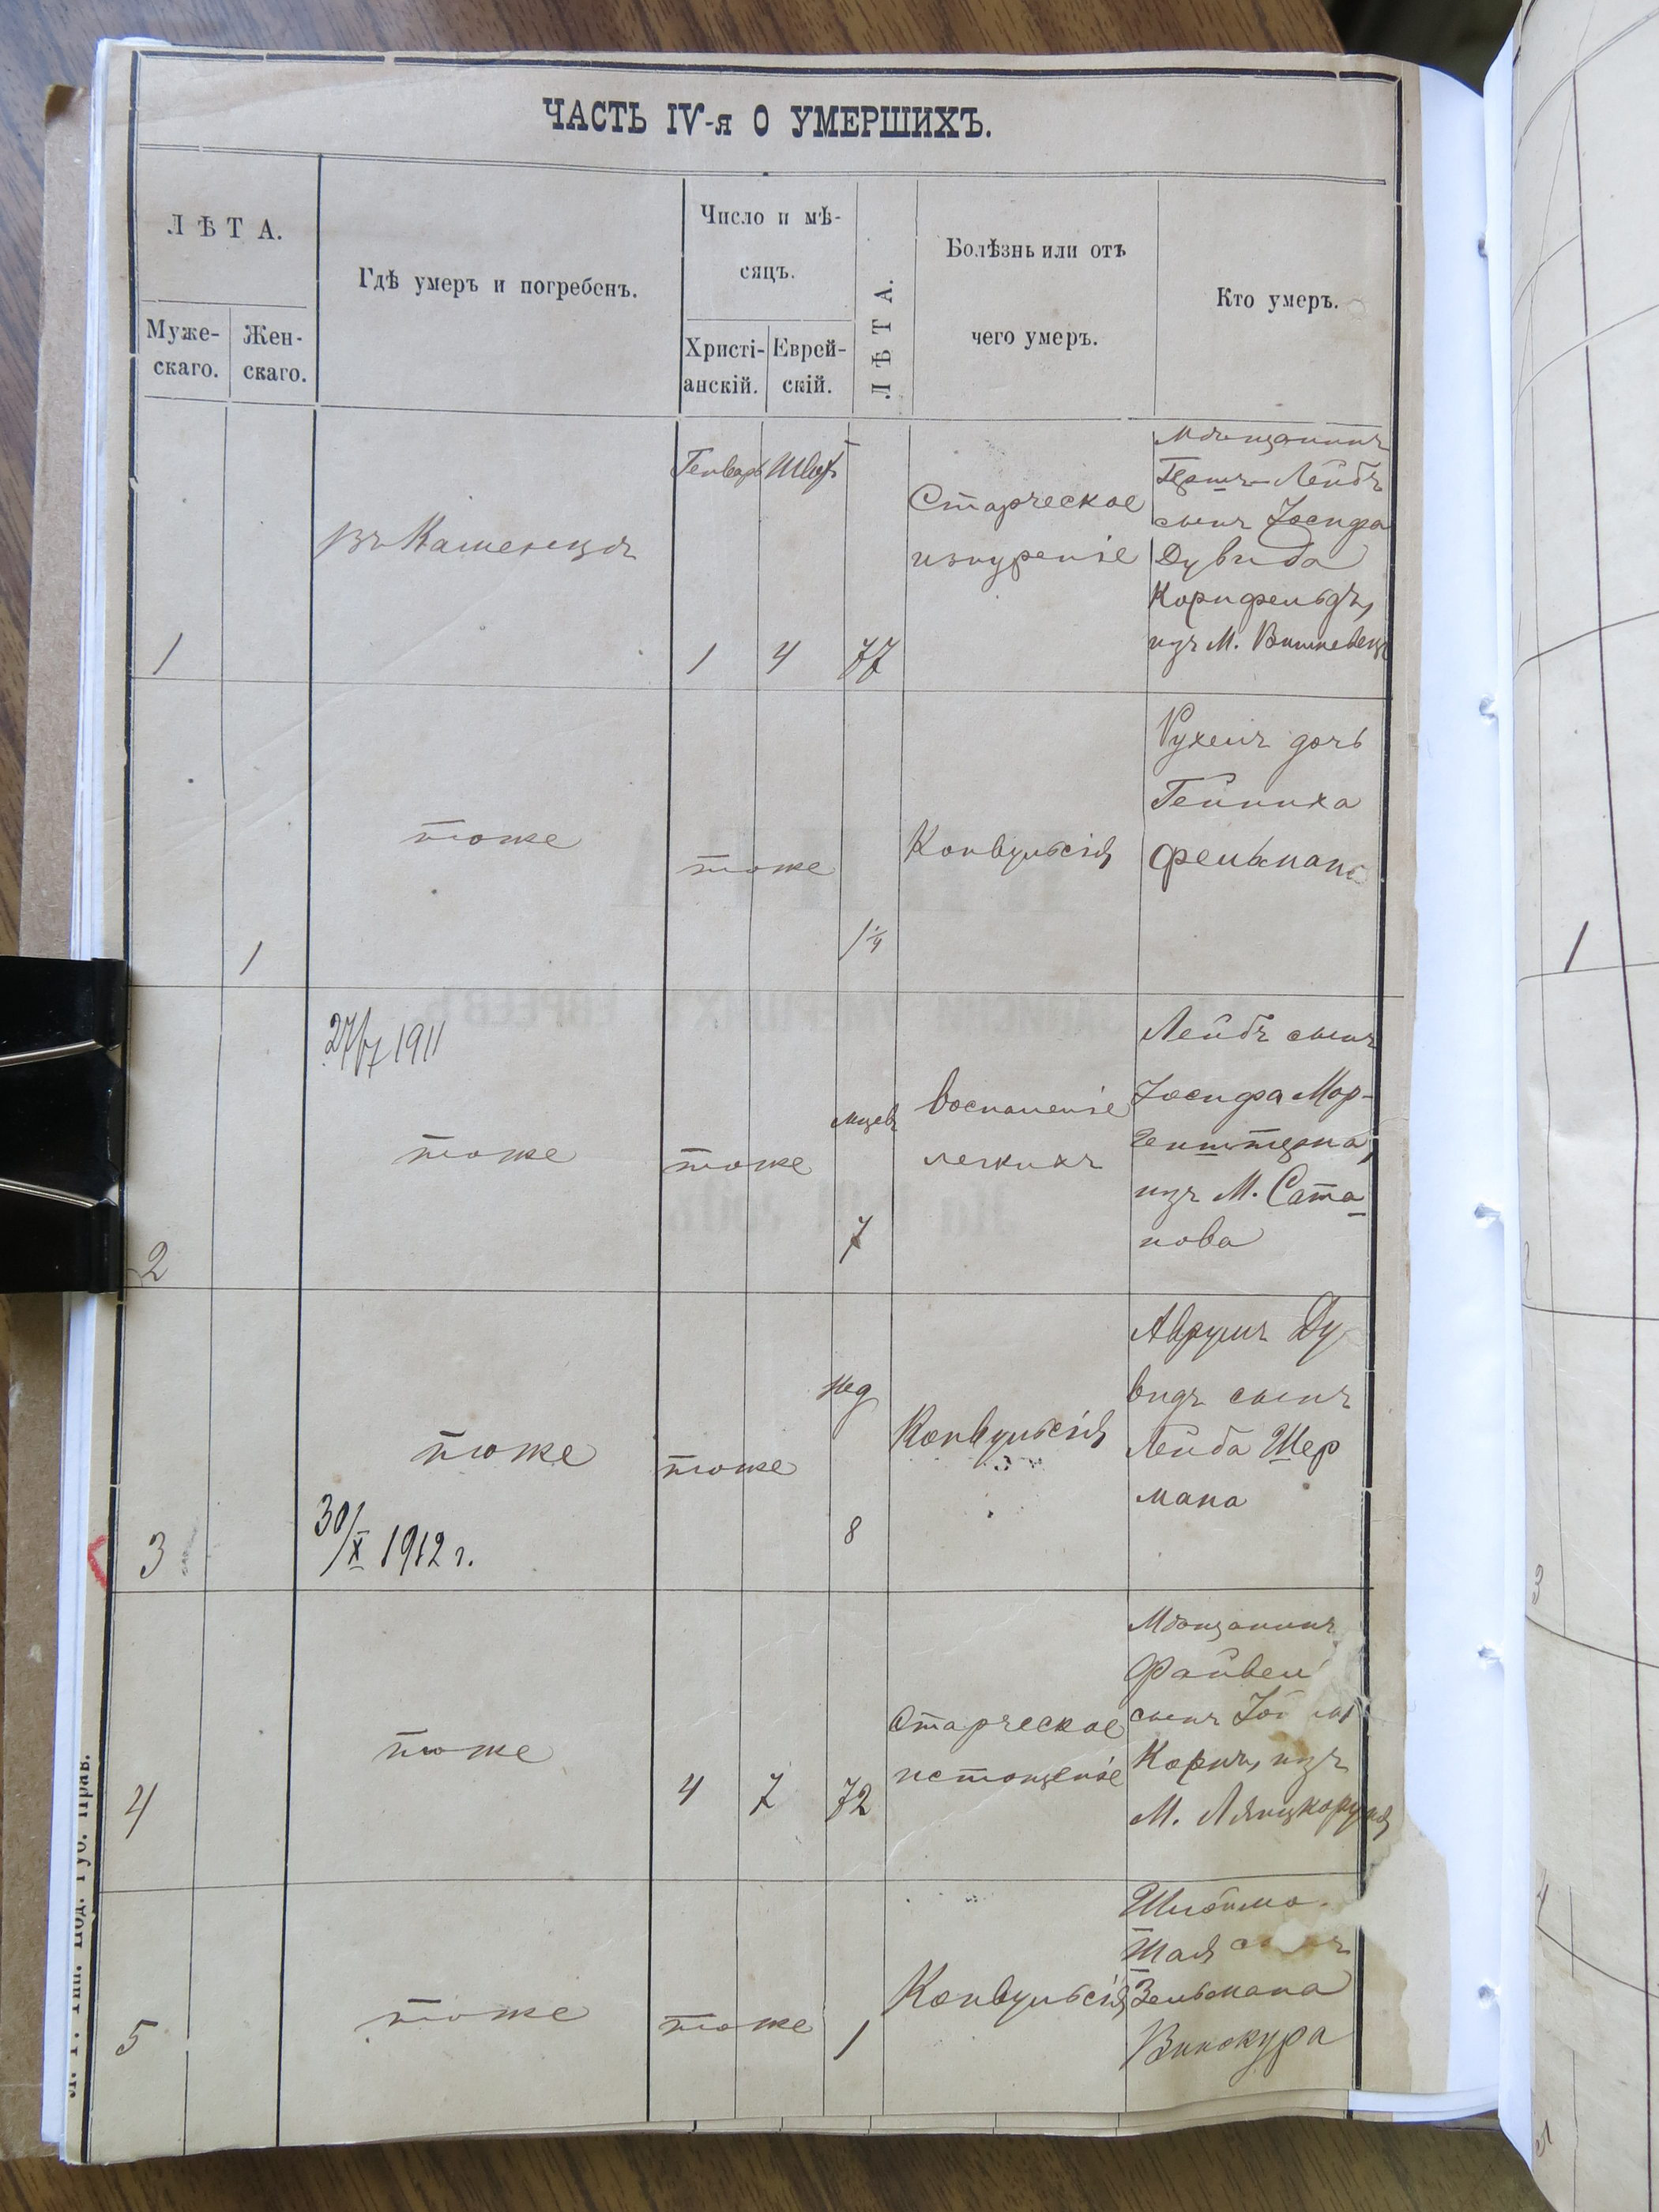 ЧАСТЬ IV-я О УМЕРШИХЪ.
ЛѢТА.
Муже-
скаго.
Жен-
скаго.
Гдѣ умеръ и погребенъ.
Число и мѣ-
сяцъ.
Христі-
анскій.
Еврей-
скій.
ЛѢТА.
Болѣзнь или отъ
чего умеръ.
Кто умеръ.
1
въ Каменецѣ
Генварь
1
Шват
4
77
Старческое
изнуреніе
Мѣщанинъ
Гершъ-Лейбъ
сынъ Іосифа
Дувида
Корнфельдъ,
изъ М. Вишневецъ
1
тоже
тоже
1 1/4
Конвульсія
Рухель дочь
Гейниха
Фельмана
2
27/V 1911
тоже
тоже
мцев
7
Воспаленіе
легкихъ
Лейбъ сынъ
Іосифа Мор-
генштерна,
изъ М. Сата-
нова
3
тоже
30/X 1912 г.
тоже
нед
8
Конвульсія
Аврумъ Ду
видъ сынъ
Лейба Шер
мана
4
тоже
4
7
72
Старческое
истощеніе
Мѣщанинъ
Файвель
сынъ
Корнъ, изъ
М. Лянцкоруня
5
тоже
тоже
1
Конвульсія
Шлойма
Шая
Зельмана
Винокура
Тип. Под. Губ. Прав.
1
2
3
4
5